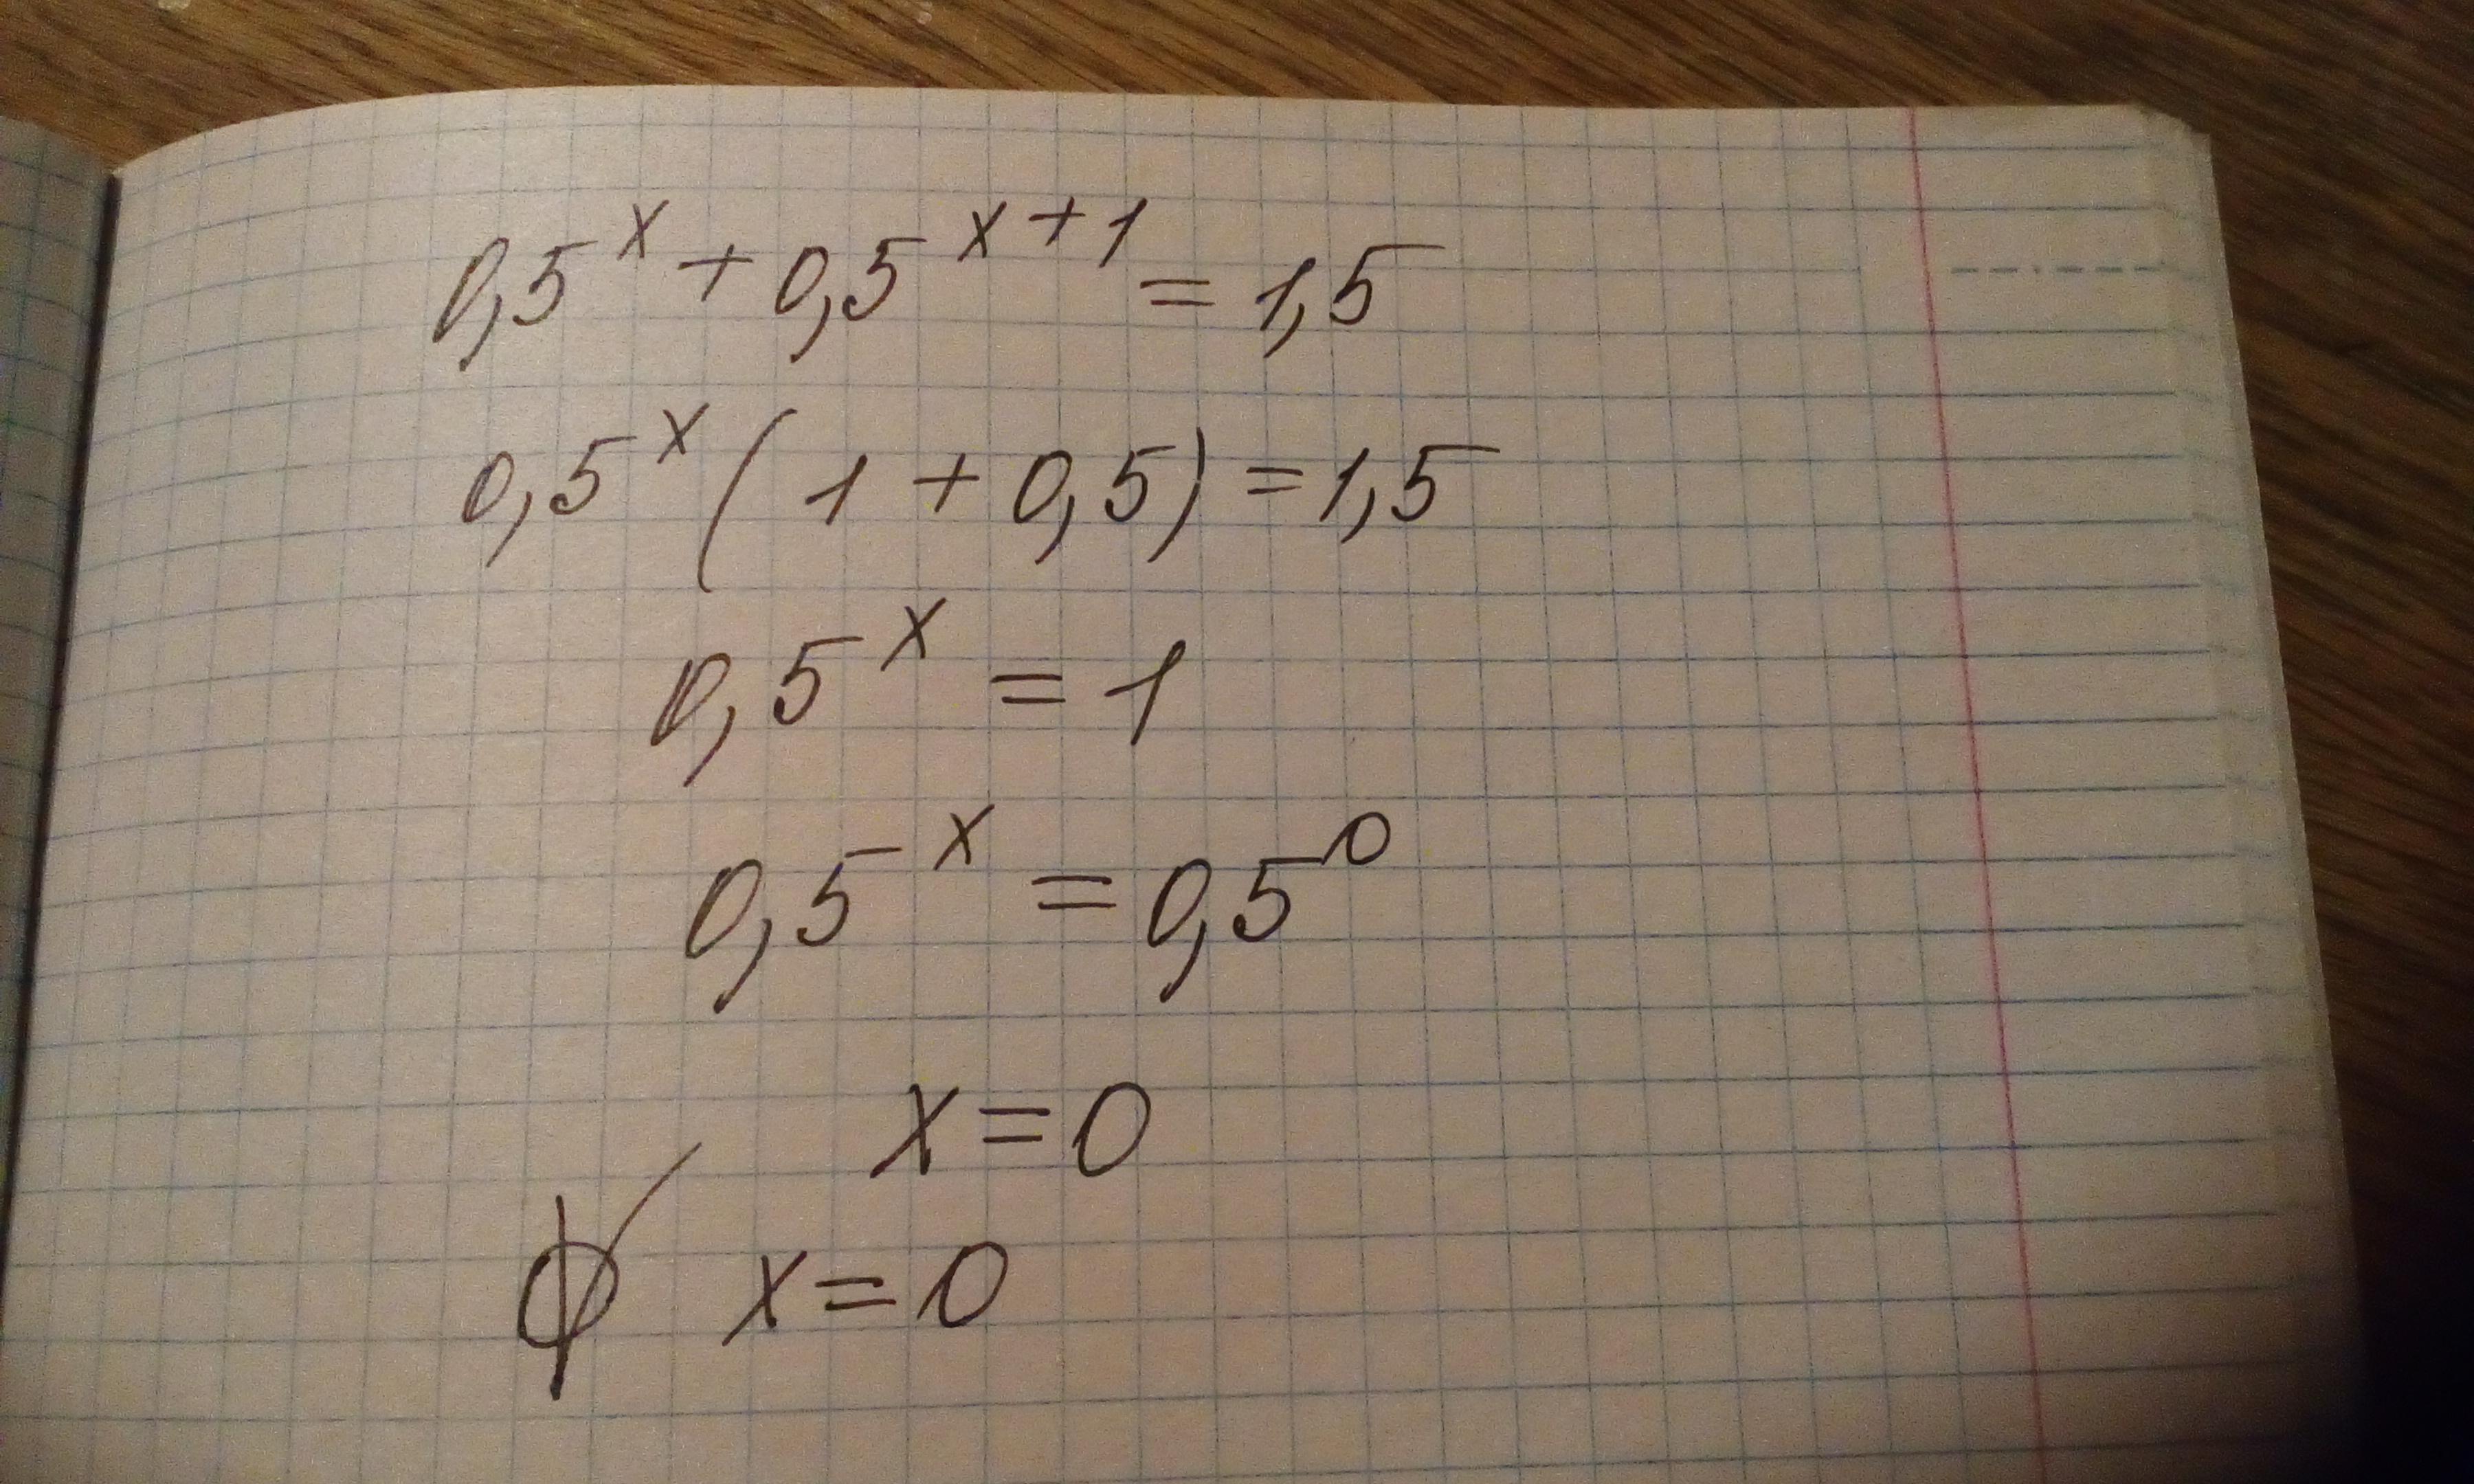 0,5^x + 0,5^{x+1} = 1,5
0,5^x (1 + 0,5) = 1,5
0,5^x = 1
0,5^x = 0,5^0
x = 0
x = 0